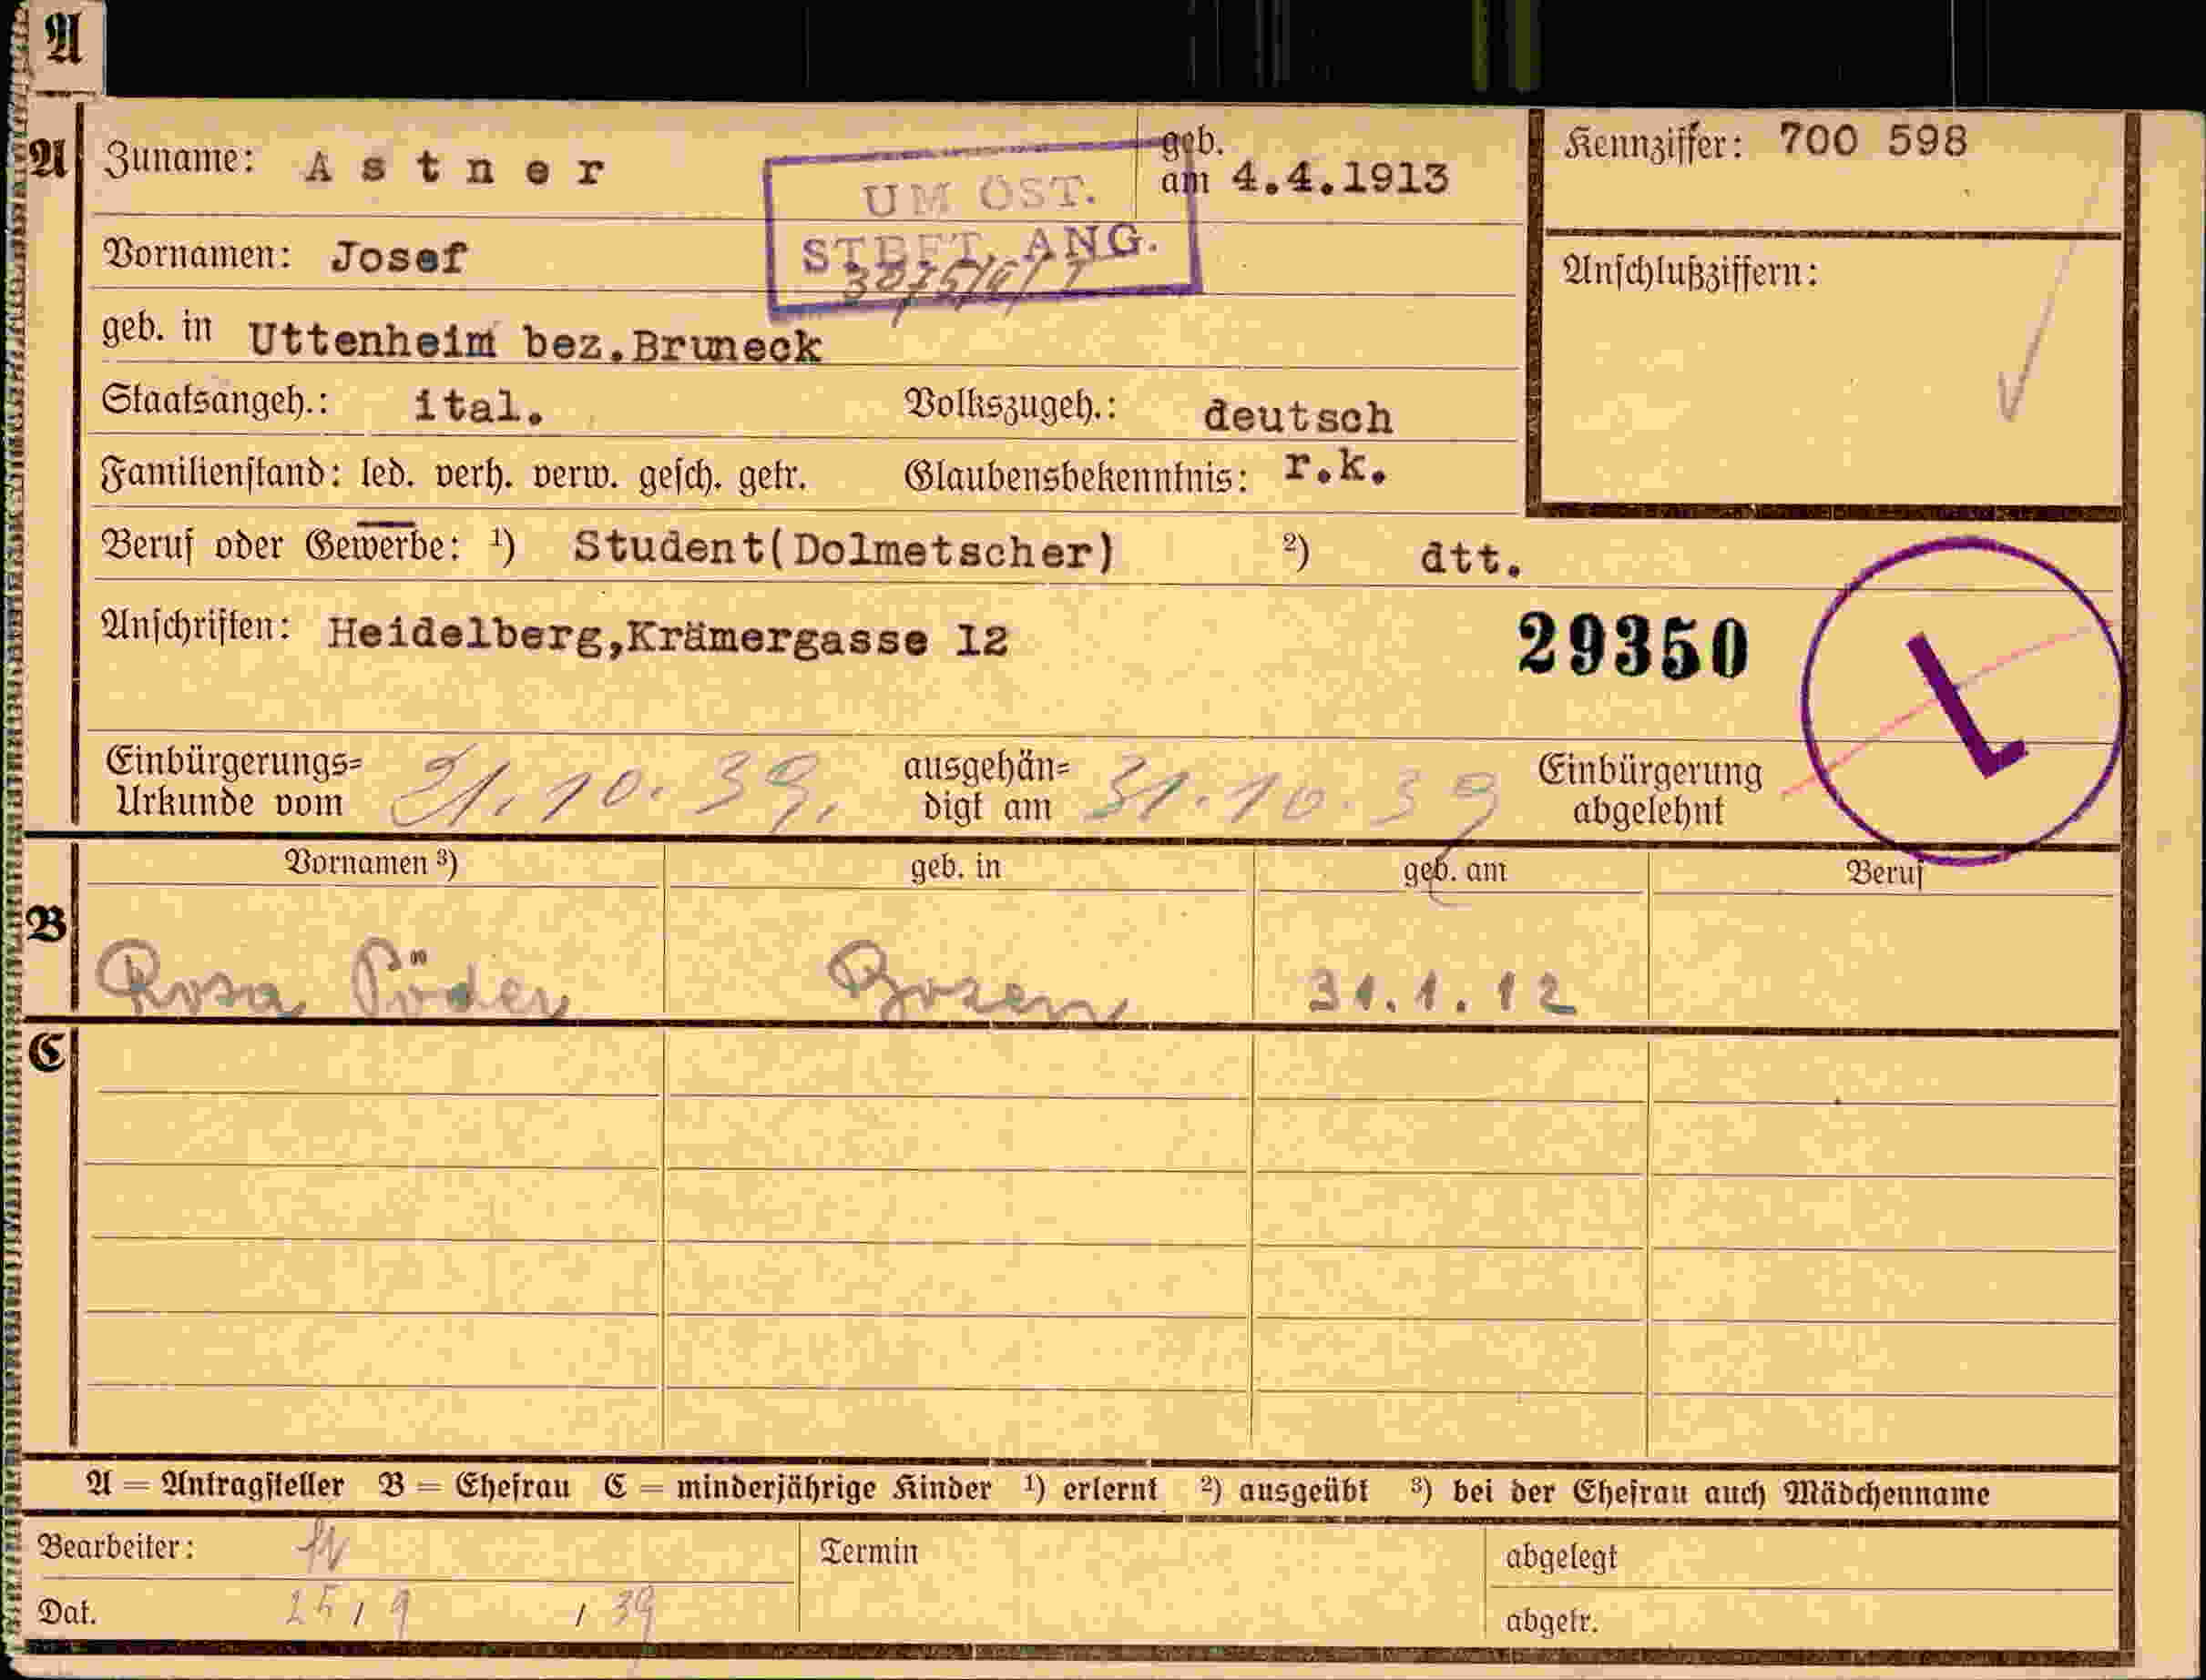 A
A Zuname: Astner geb. am 4.4.1913 Kennziffer: 700 598
UM ÖST.
STBFT. ANG.
Vornamen: Josef
Anschlußziffern:
geb. in Uttenheim bez.Bruneck
Staatsangeh.: ital. Volkszugeh.: deutsch
Familienstand: led. verh. verw. gesch. getr. Glaubensbekenntnis: r.k.
Beruf oder Gewerbe: ¹) Student(Dolmetscher) ²) dtt.
Anschriften: Heidelberg,Krämergasse I2
29350
L
Einbürgerungs=
Urkunde vom 21.10.39.
ausgehän=
digt am 31.10.39
Einbürgerung
abgelehnt
Vornamen ³) geb. in geb. am Beruf
B Rosa Pöder Bozen 31.1.12
C
A = Antragsteller B = Ehefrau C = minderjährige Kinder ¹) erlernt ²) ausgeübt ³) bei der Ehefrau auch Mädchenname
Bearbeiter: Termin abgelegt
Dat. 25/9 / 39 abgetr.